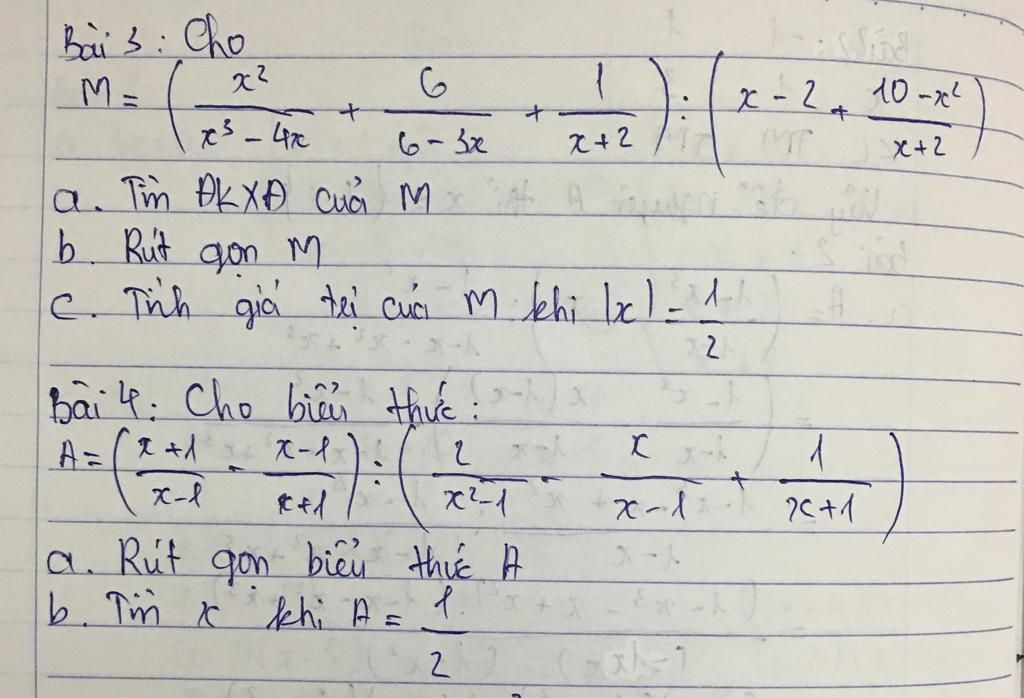 Bài 3: Cho
M = ( x²/(x³ - 4x) + 6/(6 - 3x) + 1/(x+2) ) : ( x - 2 + (10 - x²)/(x+2) )
a. Tìm ĐKXĐ của M
b. Rút gọn M
c. Tính giá trị của M khi |x| = 1/2
Bài 4: Cho biểu thức:
A = ( (x+1)/(x-1) - (x-1)/(x+1) ) : ( 2/(x²-1) - x/(x-1) + 1/(x+1) )
a. Rút gọn biểu thức A
b. Tìm x khi A = 1/2